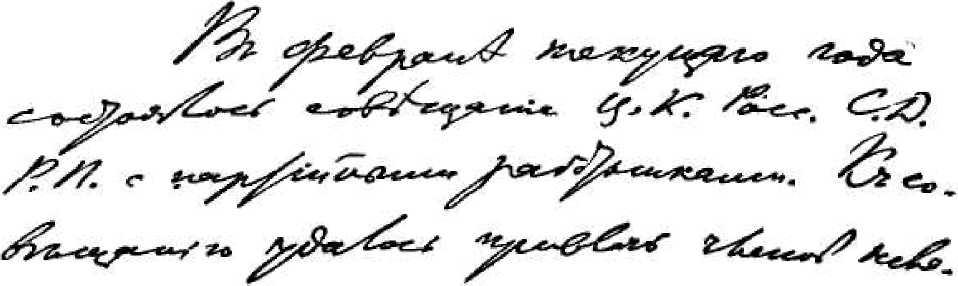 Въ февралѣ текущаго года
состоялось совѣщаніе Ц.К. Росс. С.Д.
Р.П. с партійными работниками. Къ со-
вѣщанію удалось привлечь членов неле-